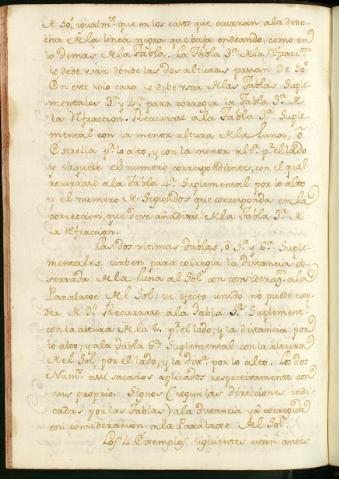 de 50', igualmte. que en los casos que ocurran ala dere-
cha de la linea negra que baja ondeando, como en
lo demas de la tabla. La tabla 3ª. de la Refraccion
se debe usar donde las dos alturas pasan de 50º
En este solo caso se debe usar de las Tablas Suple-
mentales 3ª. y 4ª. para corregir la Tabla 3ª. de
la Refraccion. Recurrase a la Tabla 3ª. Suple-
mental con la menor altura de la Luna, ó
Estrella pr. lo alto, y con la menor alta. pr. el lado
y saquese el numero correspondiente, con el qual
recurrase a la Tabla 4ª. Suplemental por lo alto
y el numero de Segundos que corresponda en la
correccion, que deve añadirse de la Tabla 3ª. de
la Refraccion.
Las dos ultimas Tablas, ó 5ª. y 6ª. Suple-
mentales, sirben para corregir la distancia ob-
servada de la Luna al Sol con consideracn. a la
Paralaxe del Sol: su efecto unido no puede exce-
der de Recurrase a la Tabla 5ª. Suplement.
con la altura de la pr. el lado, y la distancia por
lo alto; y ala Tabla 6ª. Suplemental con la altura
del Sol por el lado, y la dista. por lo alto. Los dos
Nums. assi sacados aplicados respectivamente con
sus proprios signos (segun las direcciones indi-
cadas por las tablas) a la distancia yá corregida
con consideracion a la Paralaxe del Sol.
Los 4 Exemplos siguientes estan antes